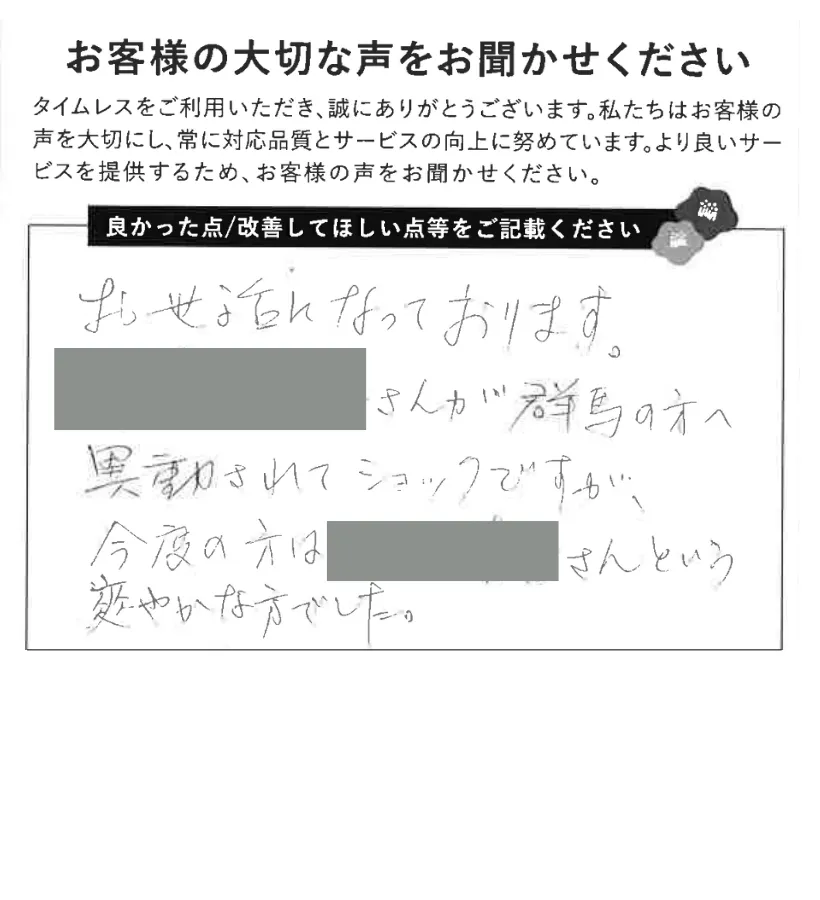 お客様の大切な声をお聞かせください
タイムレスをご利用いただき、誠にありがとうございます。私たちはお客様の
声を大切にし、常に対応品質とサービスの向上に努めています。より良いサー
ビスを提供するため、お客様の声をお聞かせください。
良かった点/改善してほしい点等をご記載ください
お世話になっております。
さんが群馬の方へ
異動されてショックですが、
今度の方は さんという
爽やかな方でした。